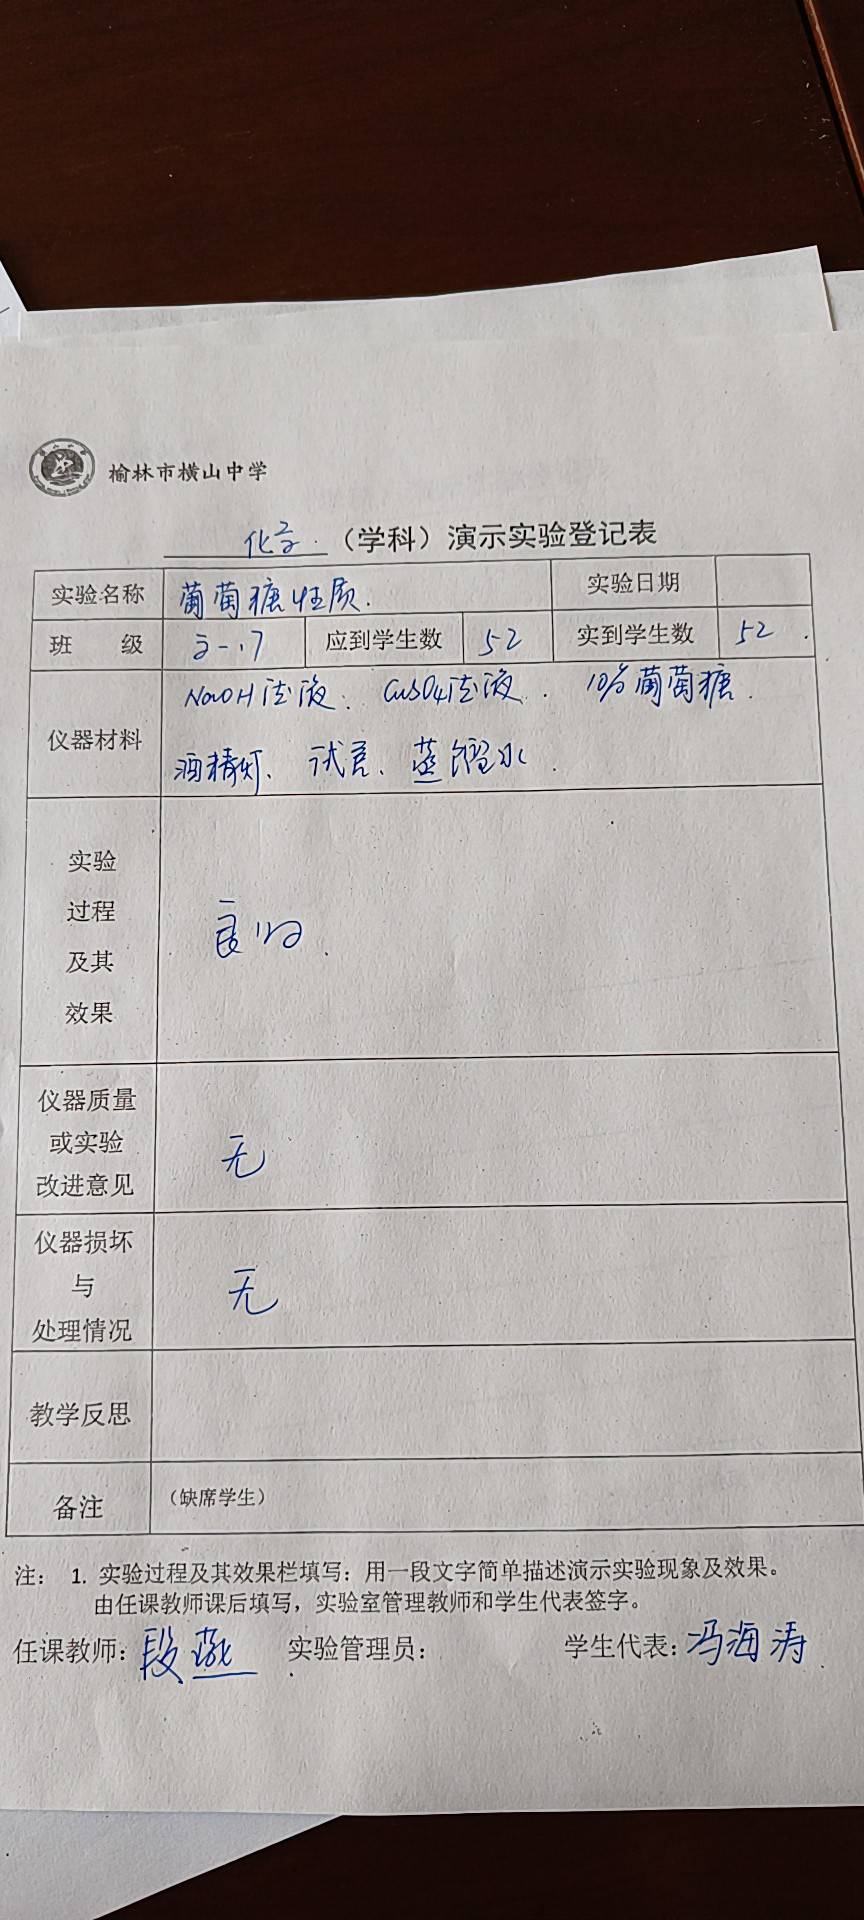 榆林市横山中学
化学（学科）演示实验登记表
实验名称 葡萄糖性质. 实验日期
班 级 应到学生数 52 实到学生数 52
仪器材料 NaOH溶液. CuSO4溶液. 10%葡萄糖.
酒精灯、试管、蒸馏水.
实验
过程
及其
效果
良好.
仪器质量
或实验
改进意见
无
仪器损坏
与
处理情况
无
教学反思
备注 （缺席学生）
注： 1. 实验过程及其效果栏填写：用一段文字简单描述演示实验现象及效果。
由任课教师课后填写，实验室管理教师和学生代表签字。
任课教师：段燕 实验管理员： 学生代表：冯海涛